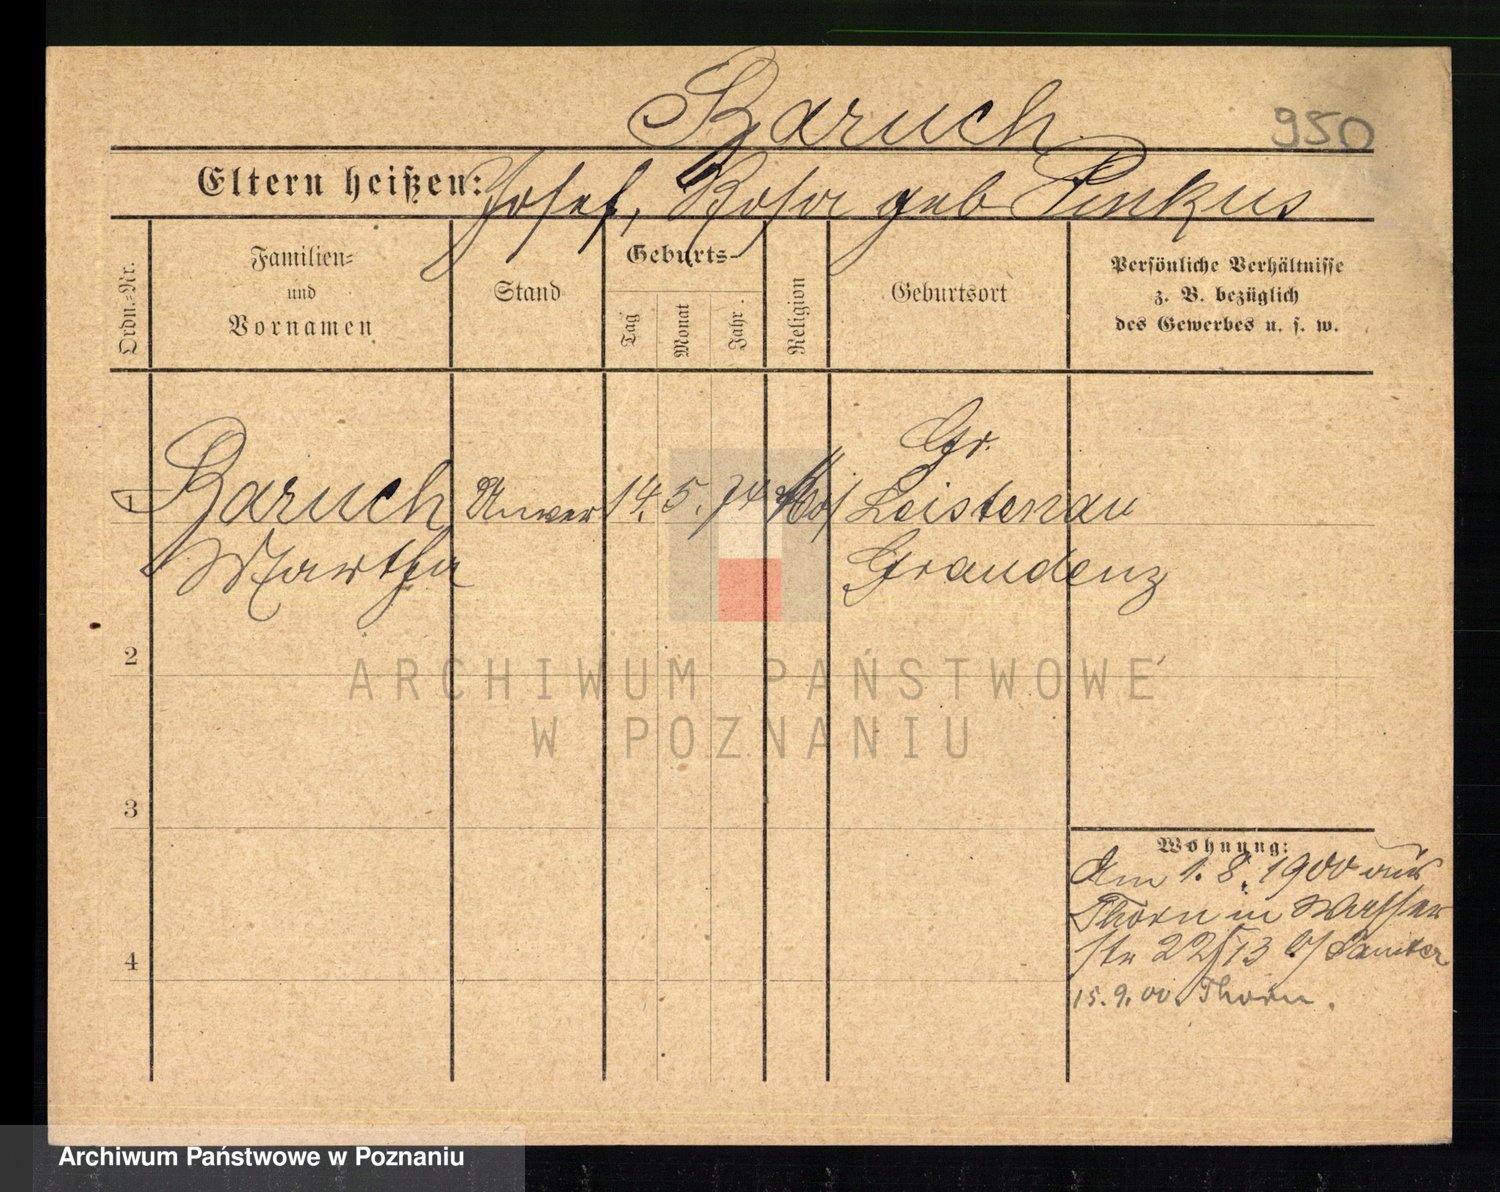 Baruch
950
Eltern heißen: Josef, Rosa geb Pinkus
Ordn.-Nr.
Familien-
und
Vornamen
Stand
Geburts-
Tag
Monat
Jahr.
Religion
Geburtsort
Persönliche Verhältnisse
z. B. bezüglich
des Gewerbes u. s. w.
Gr.
1 Baruch Unver 14. 5. 74 Mos Leistenau
Martha Graudenz
2
ARCHIWUM PAŃSTWOWE
W POZNANIU
3
Wohnung:
Am 1. 8. 1900 aus
Thorn in Wasser
str 22/13 b/ Samter
4
15. 9. 00. Thorn.
Archiwum Państwowe w Poznaniu